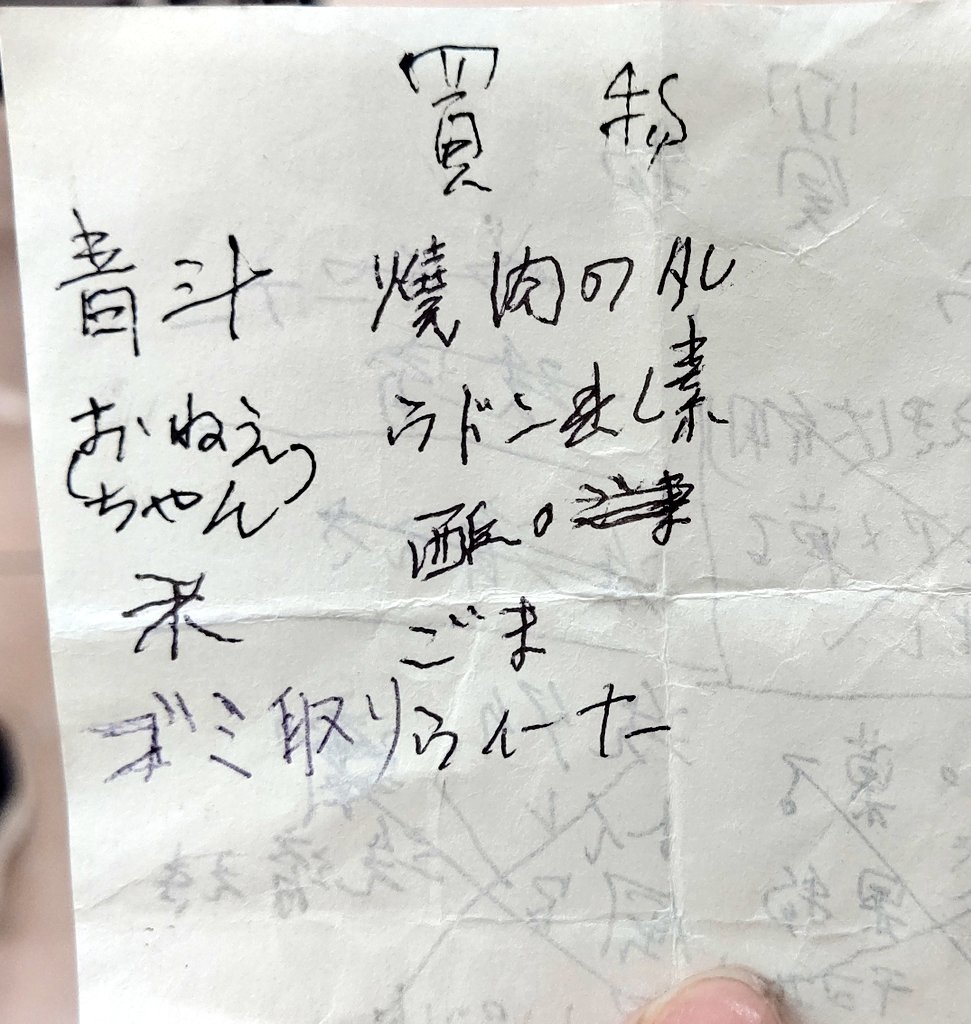 買物
燒肉のタレ
ウドン出し素
酢。
ごま
ウィーナー
青汁
(おねえ
ちゃん)
米
ゴミ取り